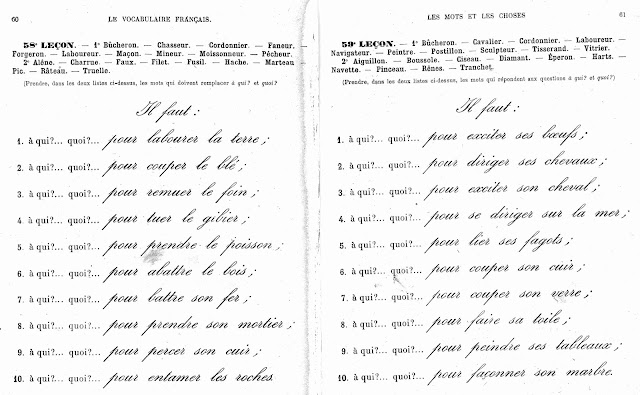 60 LE VOCABULAIRE FRANÇAIS.
58e LEÇON. — 1° Bûcheron. — Chasseur. — Cordonnier. — Faneur, —
Forgeron. — Laboureur. — Maçon. — Mineur. — Moissonneur. — Pêcheur.
2° Alène. — Charrue. — Faux. — Filet. — Fusil. — Hache. — Marteau
Pic. — Râteau. — Truelle.
(Prendre, dans les deux listes ci-dessus, les mots qui doivent remplacer à qui? et quoi?)
Il faut :
1. à qui?... quoi?... pour labourer la terre ;
2. à qui?... quoi?... pour couper le blé ;
3. à qui?... quoi?... pour remuer le foin ;
4. à qui?... quoi?... pour tuer le gibier ;
5. à qui?... quoi?... pour prendre le poisson ;
6. à qui?... quoi?... pour abattre le bois ;
7. à qui?... quoi?... pour battre son fer ;
8. à qui?... quoi?... pour prendre son mortier ;
9. à qui?... quoi?... pour percer son cuir ;
10. à qui?... quoi?... pour entamer les roches.
LES MOTS ET LES CHOSES 61
59e LEÇON. — 1° Bûcheron. — Cavalier. — Cordonnier. — Laboureur. —
Navigateur. — Peintre. — Postillon. — Sculpteur. — Tisserand. — Vitrier.
2° Aiguillon. — Boussole. — Ciseau. — Diamant. — Éperon. — Harts. —
Navette. — Pinceau. — Rênes. — Tranchet.
(Prendre, dans les deux listes ci-dessus, les mots qui répondent aux questions à qui? et quoi?)
Il faut :
1. à qui?... quoi?... pour exciter ses bœufs ;
2. à qui?... quoi?... pour diriger ses chevaux ;
3. à qui?... quoi?... pour exciter son cheval ;
4. à qui?... quoi?... pour se diriger sur la mer ;
5. à qui?... quoi?... pour lier ses fagots ;
6. à qui?... quoi?... pour couper son cuir ;
7. à qui?... quoi?... pour couper son verre ;
8. à qui?... quoi?... pour faire sa toile ;
9. à qui?... quoi?... pour peindre ses tableaux ;
10. à qui?... quoi?... pour façonner son marbre.